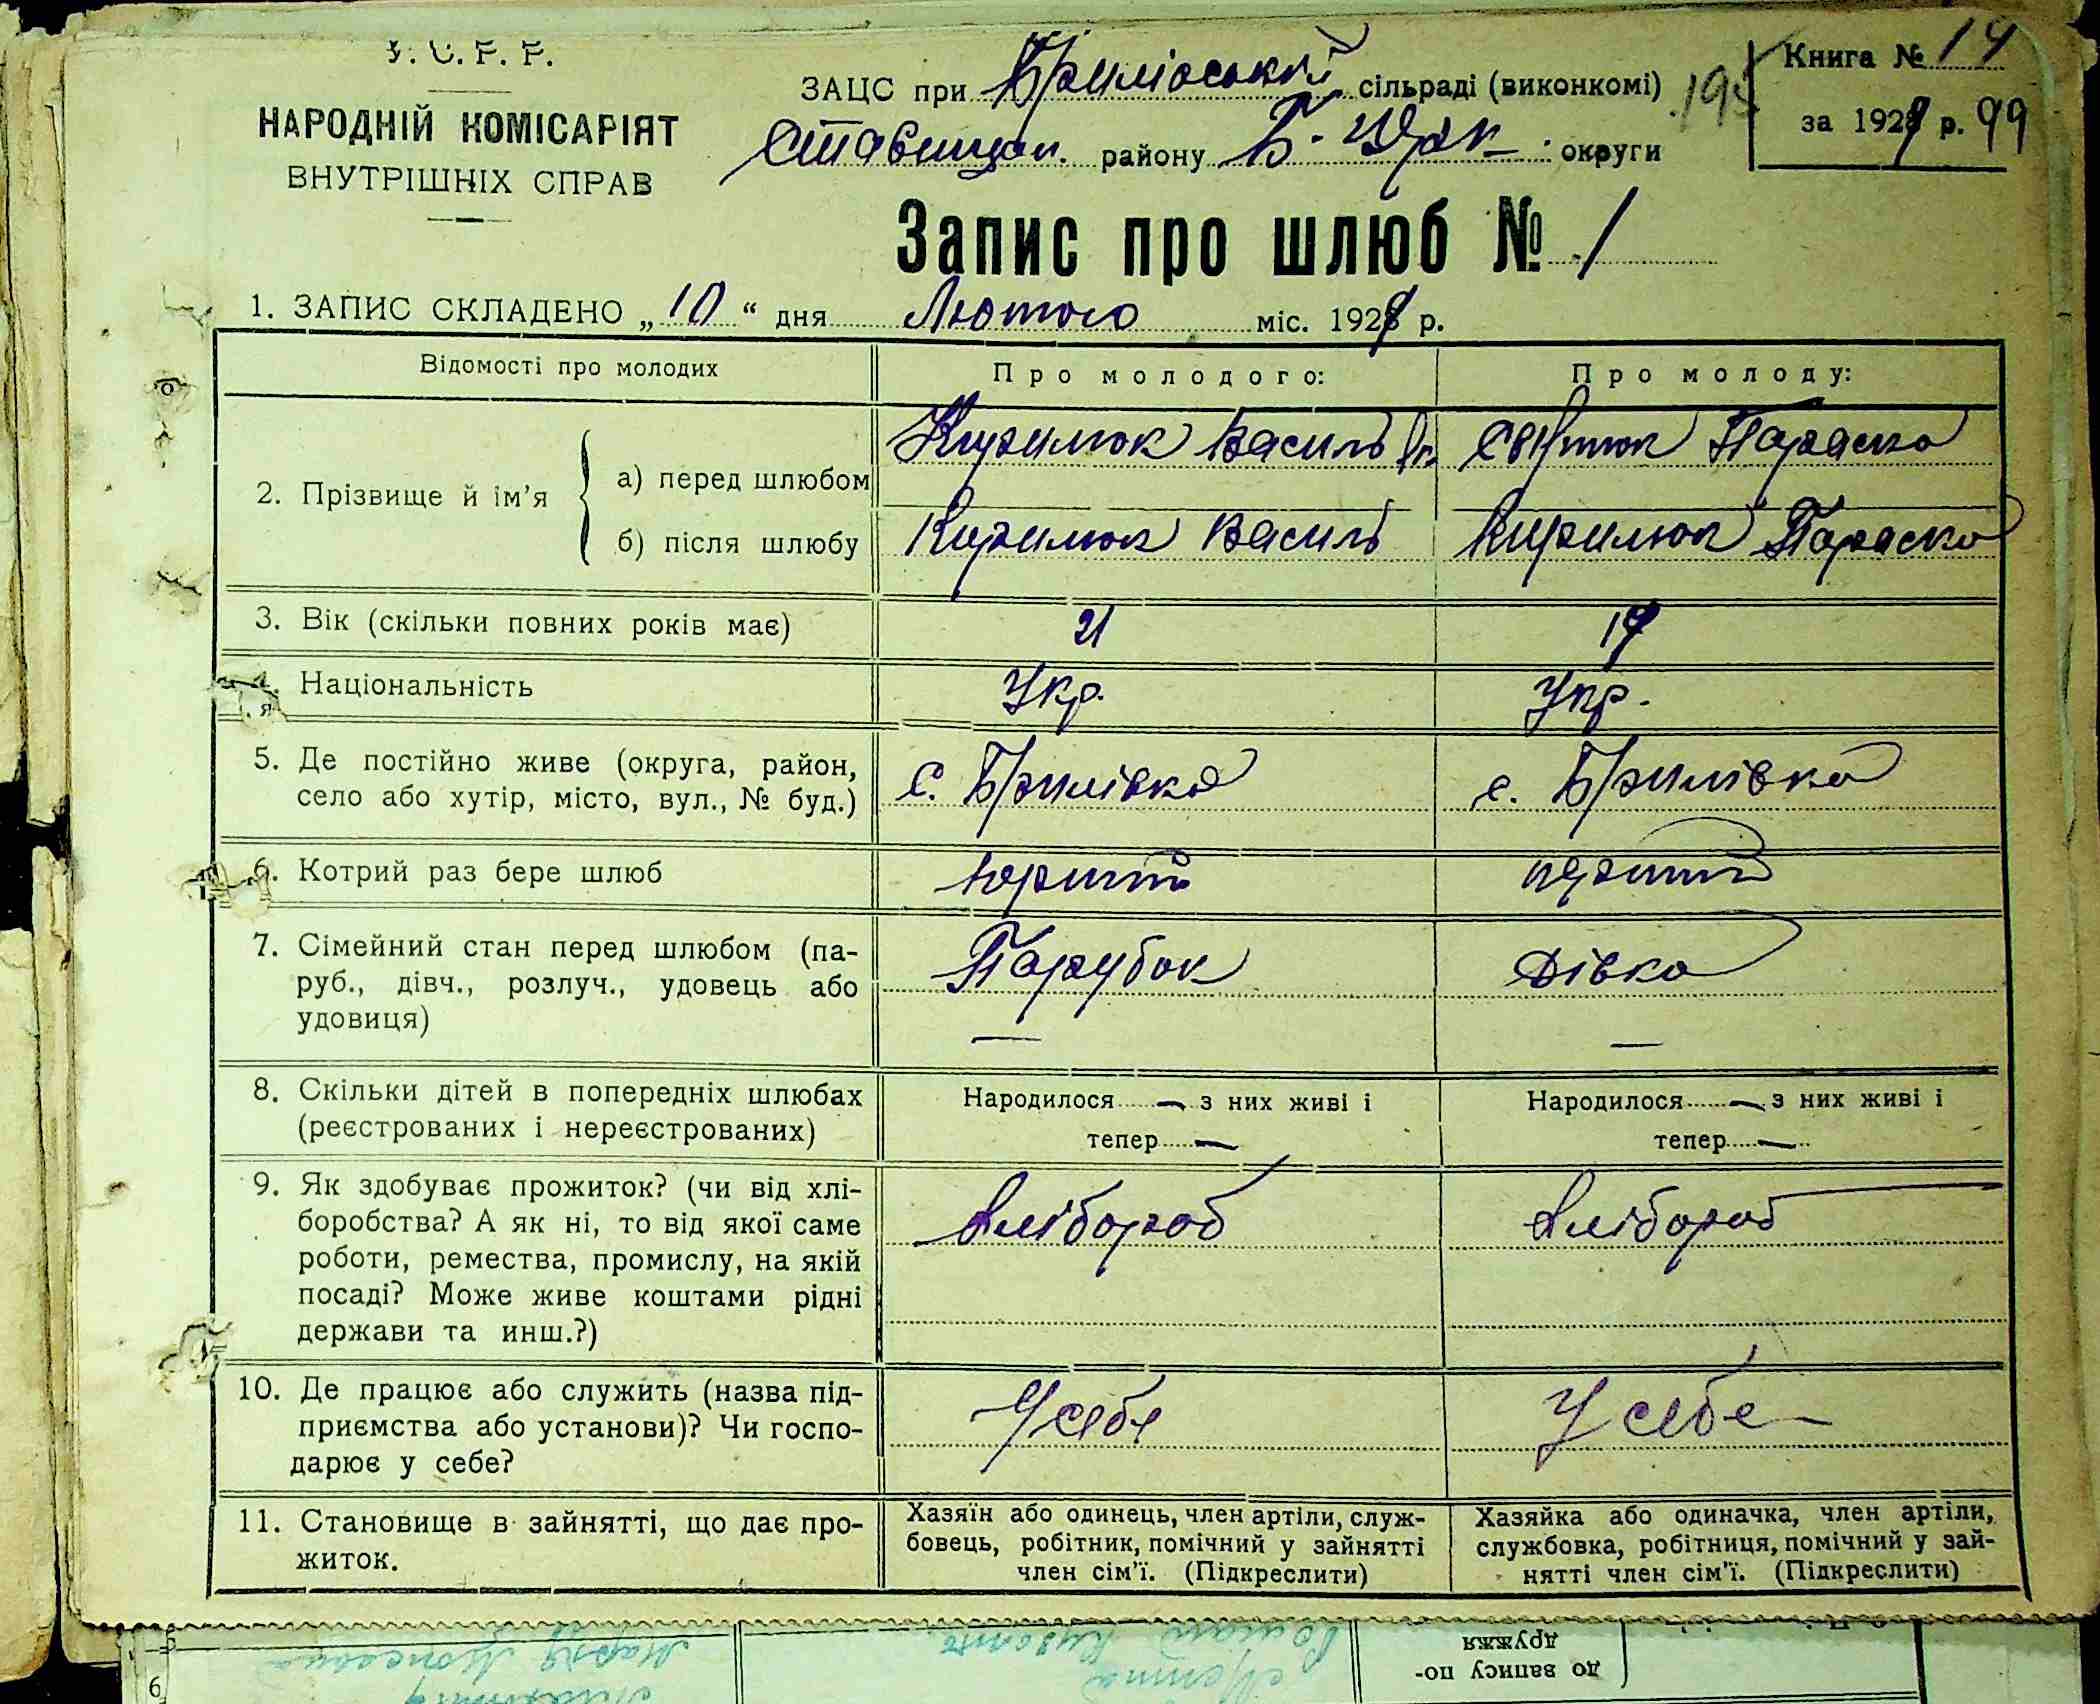 У. С. Р. Р.
НАРОДНІЙ КОМІСАРІЯТ
ВНУТРІШНІХ СПРАВ
ЗАЦС при Брилівській сільраді (виконкомі)
Ставищан. району Б-Церк. округи
Книга № 14
за 1929 р. 99
Запис про шлюб № 1
1. ЗАПИС СКЛАДЕНО „10“ дня Лютого міс. 1929 р.
Відомості про молодих
Про молодого:
Про молоду:
2. Прізвище й ім’я
а) перед шлюбом
Кирилюк Василь
Параска
б) після шлюбу
Кирилюк Василь
Кирилюк Параска
3. Вік (скільки повних років має)
21
4. Національність
Укр.
Укр.
5. Де постійно живе (округа, район,
село або хутір, місто, вул., № буд.)
с. Брилівка
с. Брилівка
6. Котрий раз бере шлюб
перший
перший
7. Сімейний стан перед шлюбом (па-
руб., дівч., розлуч., удовець або
удовиця)
Парубок
—
Дівка
—
8. Скільки дітей в попередніх шлюбах
(реєстрованих і нереєстрованих)
Народилося — з них живі і
тепер —
Народилося — з них живі і
тепер —
9. Як здобуває прожиток? (чи від хлі-
боробства? А як ні, то від якої саме
роботи, ремества, промислу, на якій
посаді? Може живе коштами рідні
держави та инш.?)
хлібороб
хлібороб
10. Де працює або служить (назва під-
приємства або установи)? Чи госпо-
дарює у себе?
У себе
У себе
11. Становище в зайнятті, що дає про-
житок.
Хазяїн або одинець, член артіли, служ-
бовець, робітник, помічний у зайнятті
член сім’ї. (Підкреслити)
Хазяйка або одиначка, член артіли,
службовка, робітниця, помічний у зай-
нятті член сім’ї. (Підкреслити)
дружжя
до запису по-
6